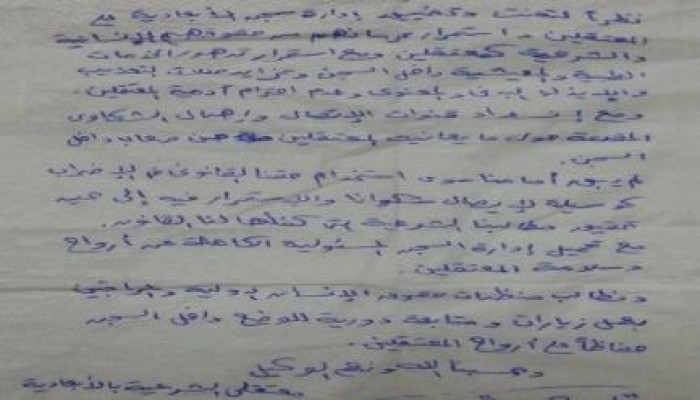 نظراً لتعنت وتضييق إدارة سجن الأبعادية مع
المعتقلين واستمرار حرمانهم من حقوقهم الإنسانية
والشرعية كمعتقلين ومع استمرار تدهور الخدمات
الطبية والمعيشية داخل السجن وتزايد حملات التعذيب
والإيذاء البدني والمعنوي وعدم احترام آدمية المعتقلين.
ومع انسداد قنوات الاتصال وإهمال الشكاوى
المقدمة حول ما يعانيه المعتقلين من صعاب داخل
السجن.
لم يبق أمامنا سوى استخدام حقنا القانوني في الإضراب
كوسيلة لإيصال شكوانا والاستمرار فيه إلى حين
تحقيق مطالبنا الشرعية التي كفلها لنا القانون.
مع تحميل إدارة السجن المسئولية الكاملة عن أرواح
وسلامة المعتقلين.
ونطالب منظمات حقوق الإنسان الدولية
بعمل زيارات ومتابعة دورية للوضع داخل السجن
حفاظاً على أرواح المعتقلين.
وحسبنا الله ونعم الوكيل
معتقلي الشرعية بالأبعادية